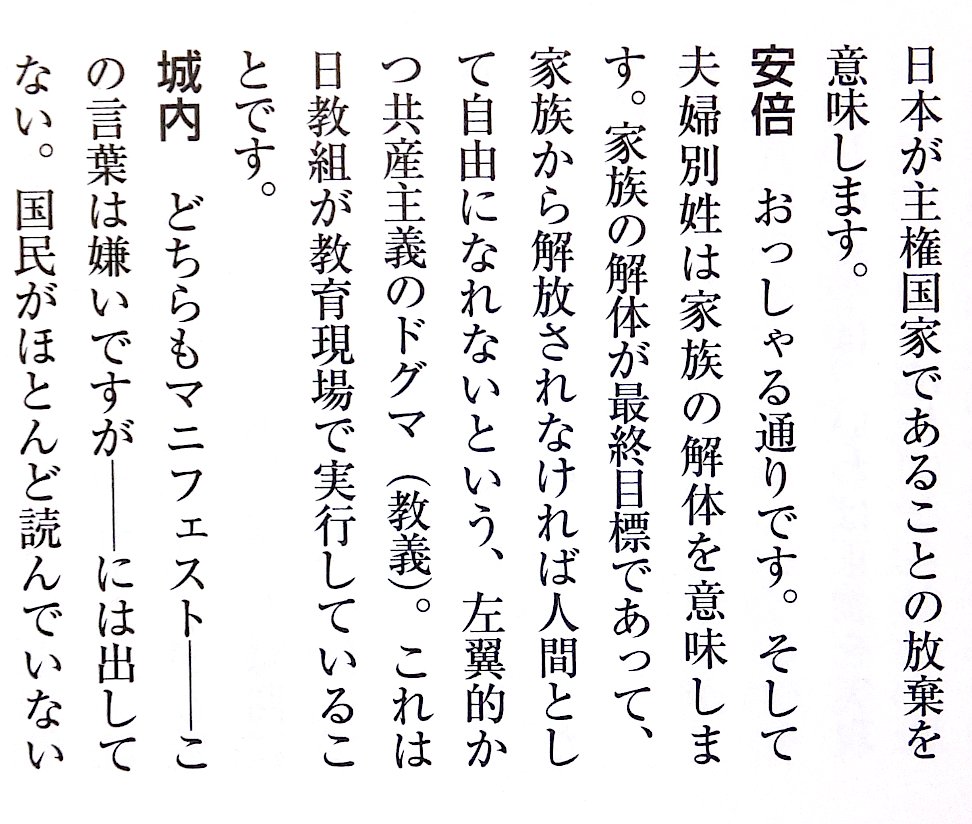 日本が主権国家であることの放棄を
意味します。
安倍　おっしゃる通りです。そして
夫婦別姓は家族の解体を意味しま
す。家族の解体が最終目標であって、
家族から解放されなければ人間とし
て自由になれないという、左翼的か
つ共産主義のドグマ（教義）。これは
日教組が教育現場で実行しているこ
とです。
城内　どちらもマニフェスト――こ
の言葉は嫌いですが――には出して
ない。国民がほとんど読んでいない